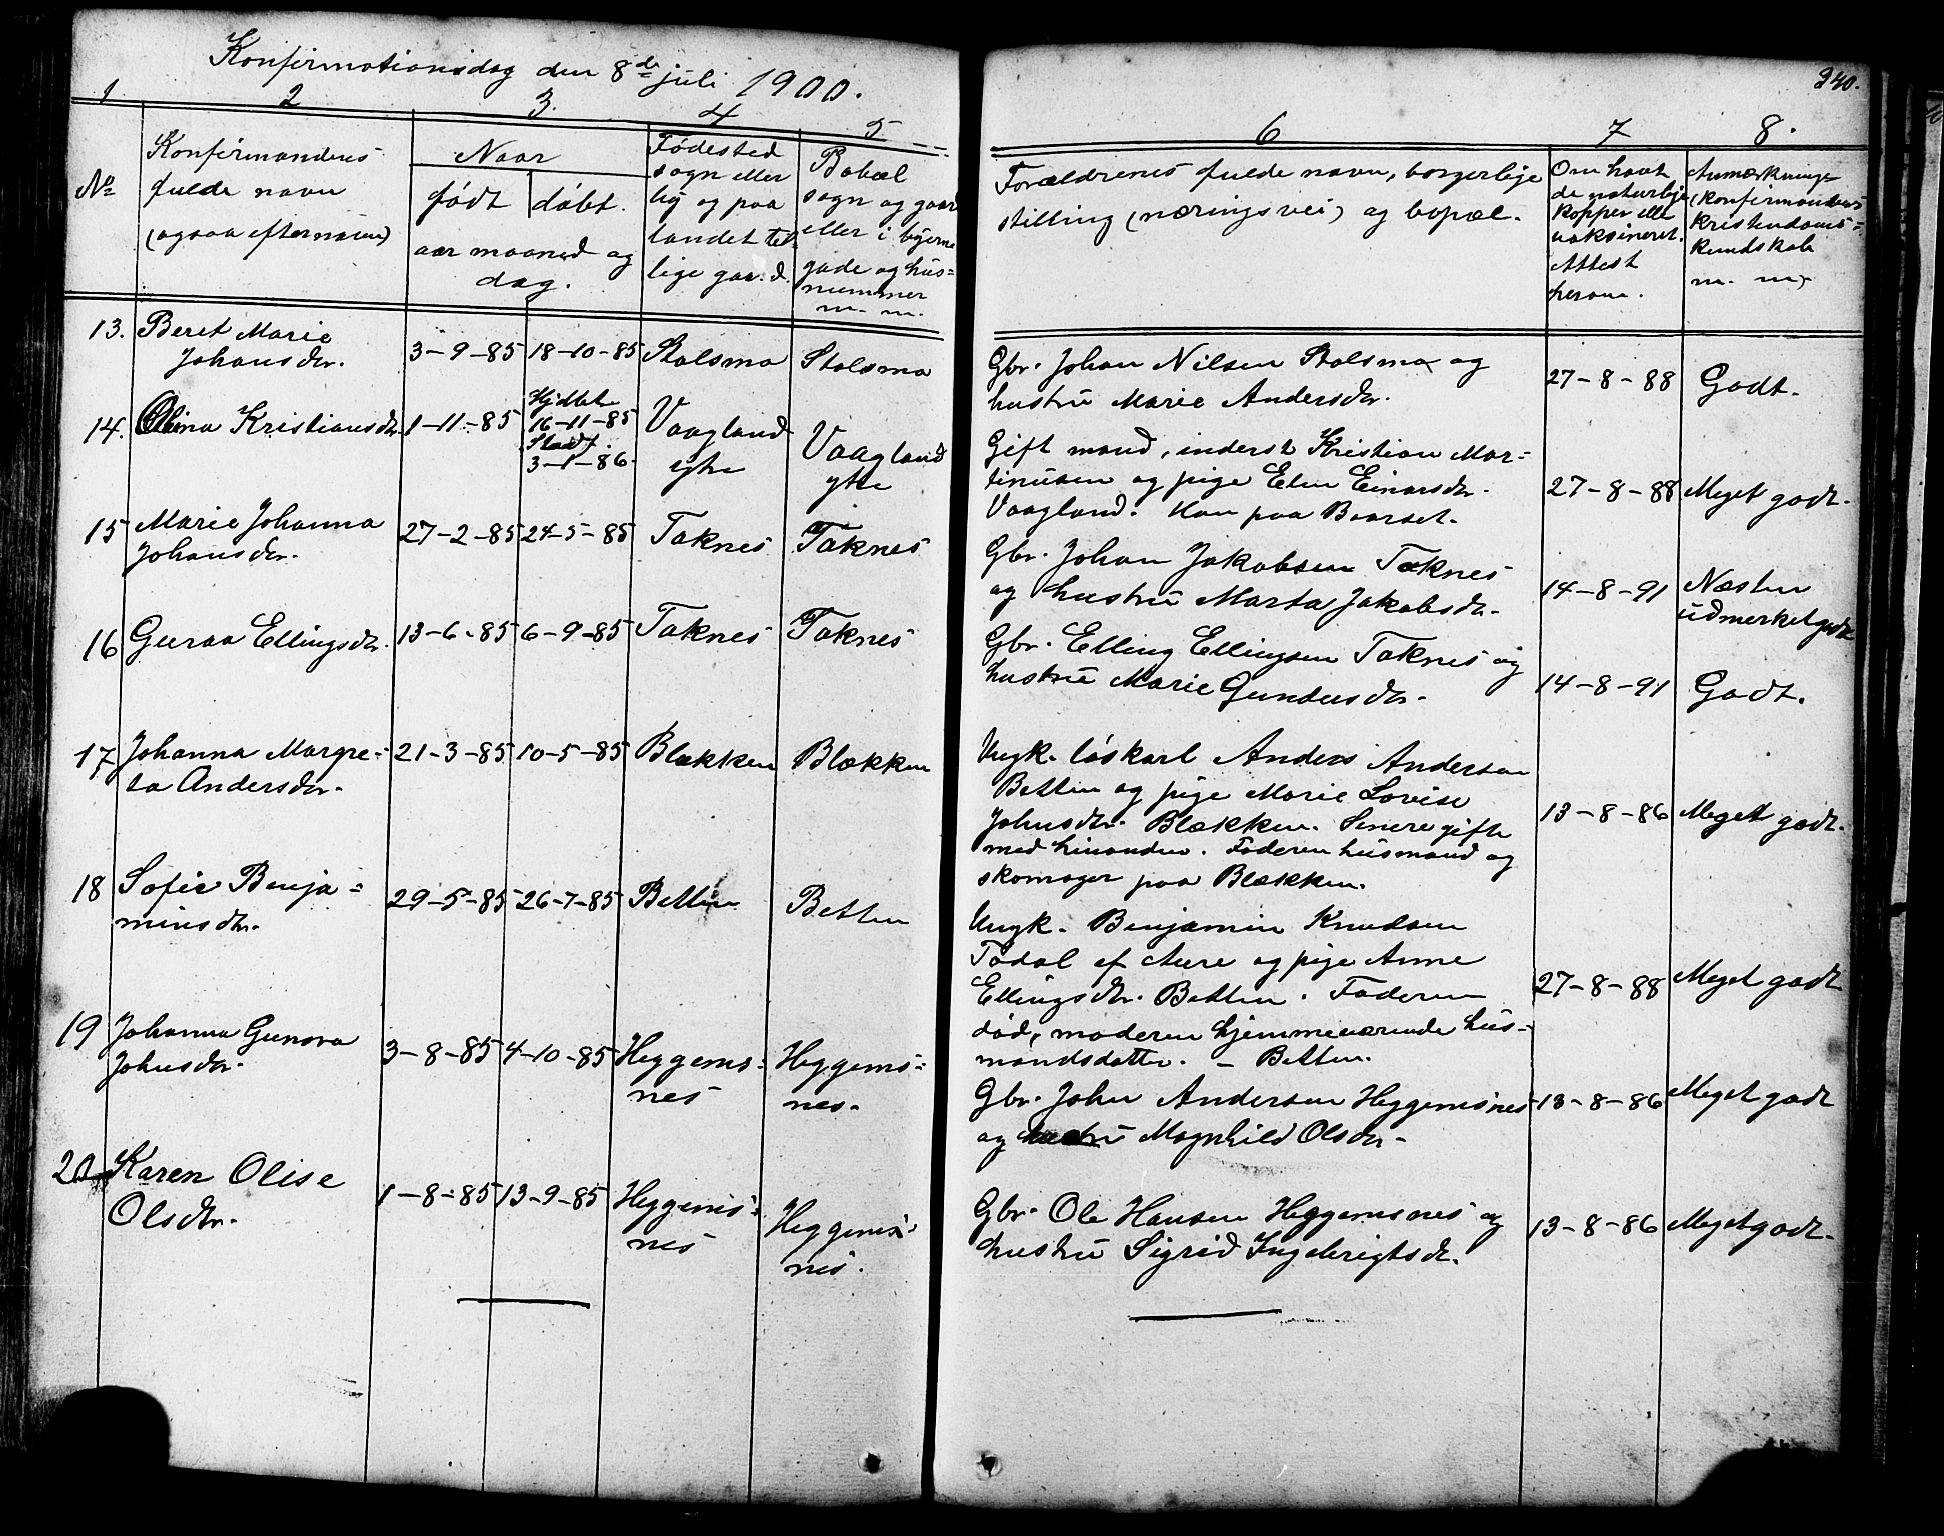 Konfirmationsdag den 8de juli 1900.
340.
1 2 3. 4 5 6 7 8.
No
Konfirmandens
fulde navn
(ogsaa efternavn)
Naar
født døbt.
aar maaned og
dag.
Fødested
sogn eller
by og paa
landet til-
lige gaard
Bopæl
sogn og gaard
eller i byerne
gade og hus-
nummer
m. m.
Forældrenes fulde navn, borgerlige
stilling (næringsvei) og bopæl.
Om havt
de naturlige
kopper eller
vaksineret.
Attest
herom.
Anmærkninger
(konfirmandens
kristendoms-
kundskab
m. m)
13. Beret Marie
Johansdtr.
3-9-85 18-10-85 Stolsmo Stolsmo
Gbr. Johan Nilsen Stolsmo og
hustru Marie Andersdtr.
27-8-88 Godt.
14. Olina Kristiansdtr.
1-11-85
Hjdbt
16-11-85
Stadf.
3-1-86.
Vaagland
ytre
Vaagland
ytre
Gift mand, inderst Kristian Mar-
tinusen og pige Elen Einarsdtr.
Vaagland. Han paa Baarset.
27-8-88 Meget godt.
15 Marie Johanna
Johansdtr.
27-2-85 24-5-85 Taknes Taknes
Gbr. Johan Jakobsen Taknes
og hustru Marta Jakobsdtr.
14-8-91 Næsten
udmerket godt
16 Guraa Ellingsdtr.
13-6-85 6-9-85 Taknes Taknes
Gbr. Elling Ellingsen Taknes og
hustru Marie Gundersdtr.
14-8-91 Godt.
17 Johanna Margre-
ta Andersdtr.
21-3-85 10-5-85 Blækken Blækken
Ungk. løskarl Anders Andersen
Betten og pige Marie Lovise
Johnsdtr. Blækken. Senere gifte
med hinanden. Faderen husmand og
skomager paa Blækken.
13-8-86 Meget godt.
18 Sofie Benja-
minsdtr.
29-5-85 26-7-85 Betten Betten
Ungk. Benjamin Knudsen
Todal af Aure og pige Anne
Ellingsdtr. Betten. Faderen
død, moderen hjemmeværende hus-
mandsdatter. - Betten.
27-8-88 Meget godt
19 Johanna Gunova
Johnsdtr.
3-8-85 4-10-85 Heggems-
nes
Heggems-
nes.
Gbr. John Andersen Heggemsnes
og hustru Magnhild Olsdtr.
13-8-86 Meget godt
20 Karen Olise
Olsdtr.
1-8-85 13-9-85 Heggems-
nes
Heggems-
nes.
Gbr. Ole Hansen Heggemsnes og
hustru Sigrid Ingebrigtsdt.
13-8-86 Meget godt.